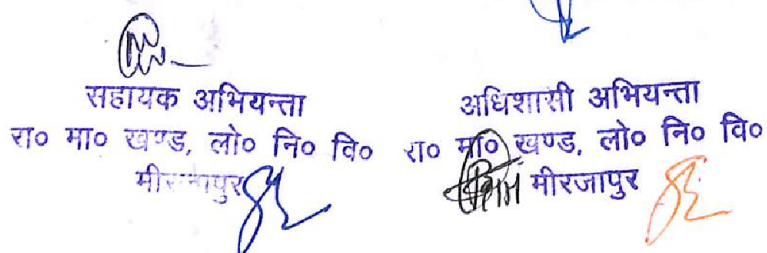 सहायक अभियन्ता
रा० मा० खण्ड, लो० नि० वि०
मीरजापुर
अधिशासी अभियन्ता
रा० मा० खण्ड, लो० नि० वि०
मीरजापुर